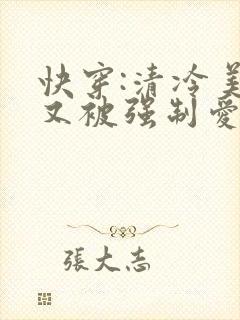 快穿:清冷美
又被强制爱
張大志